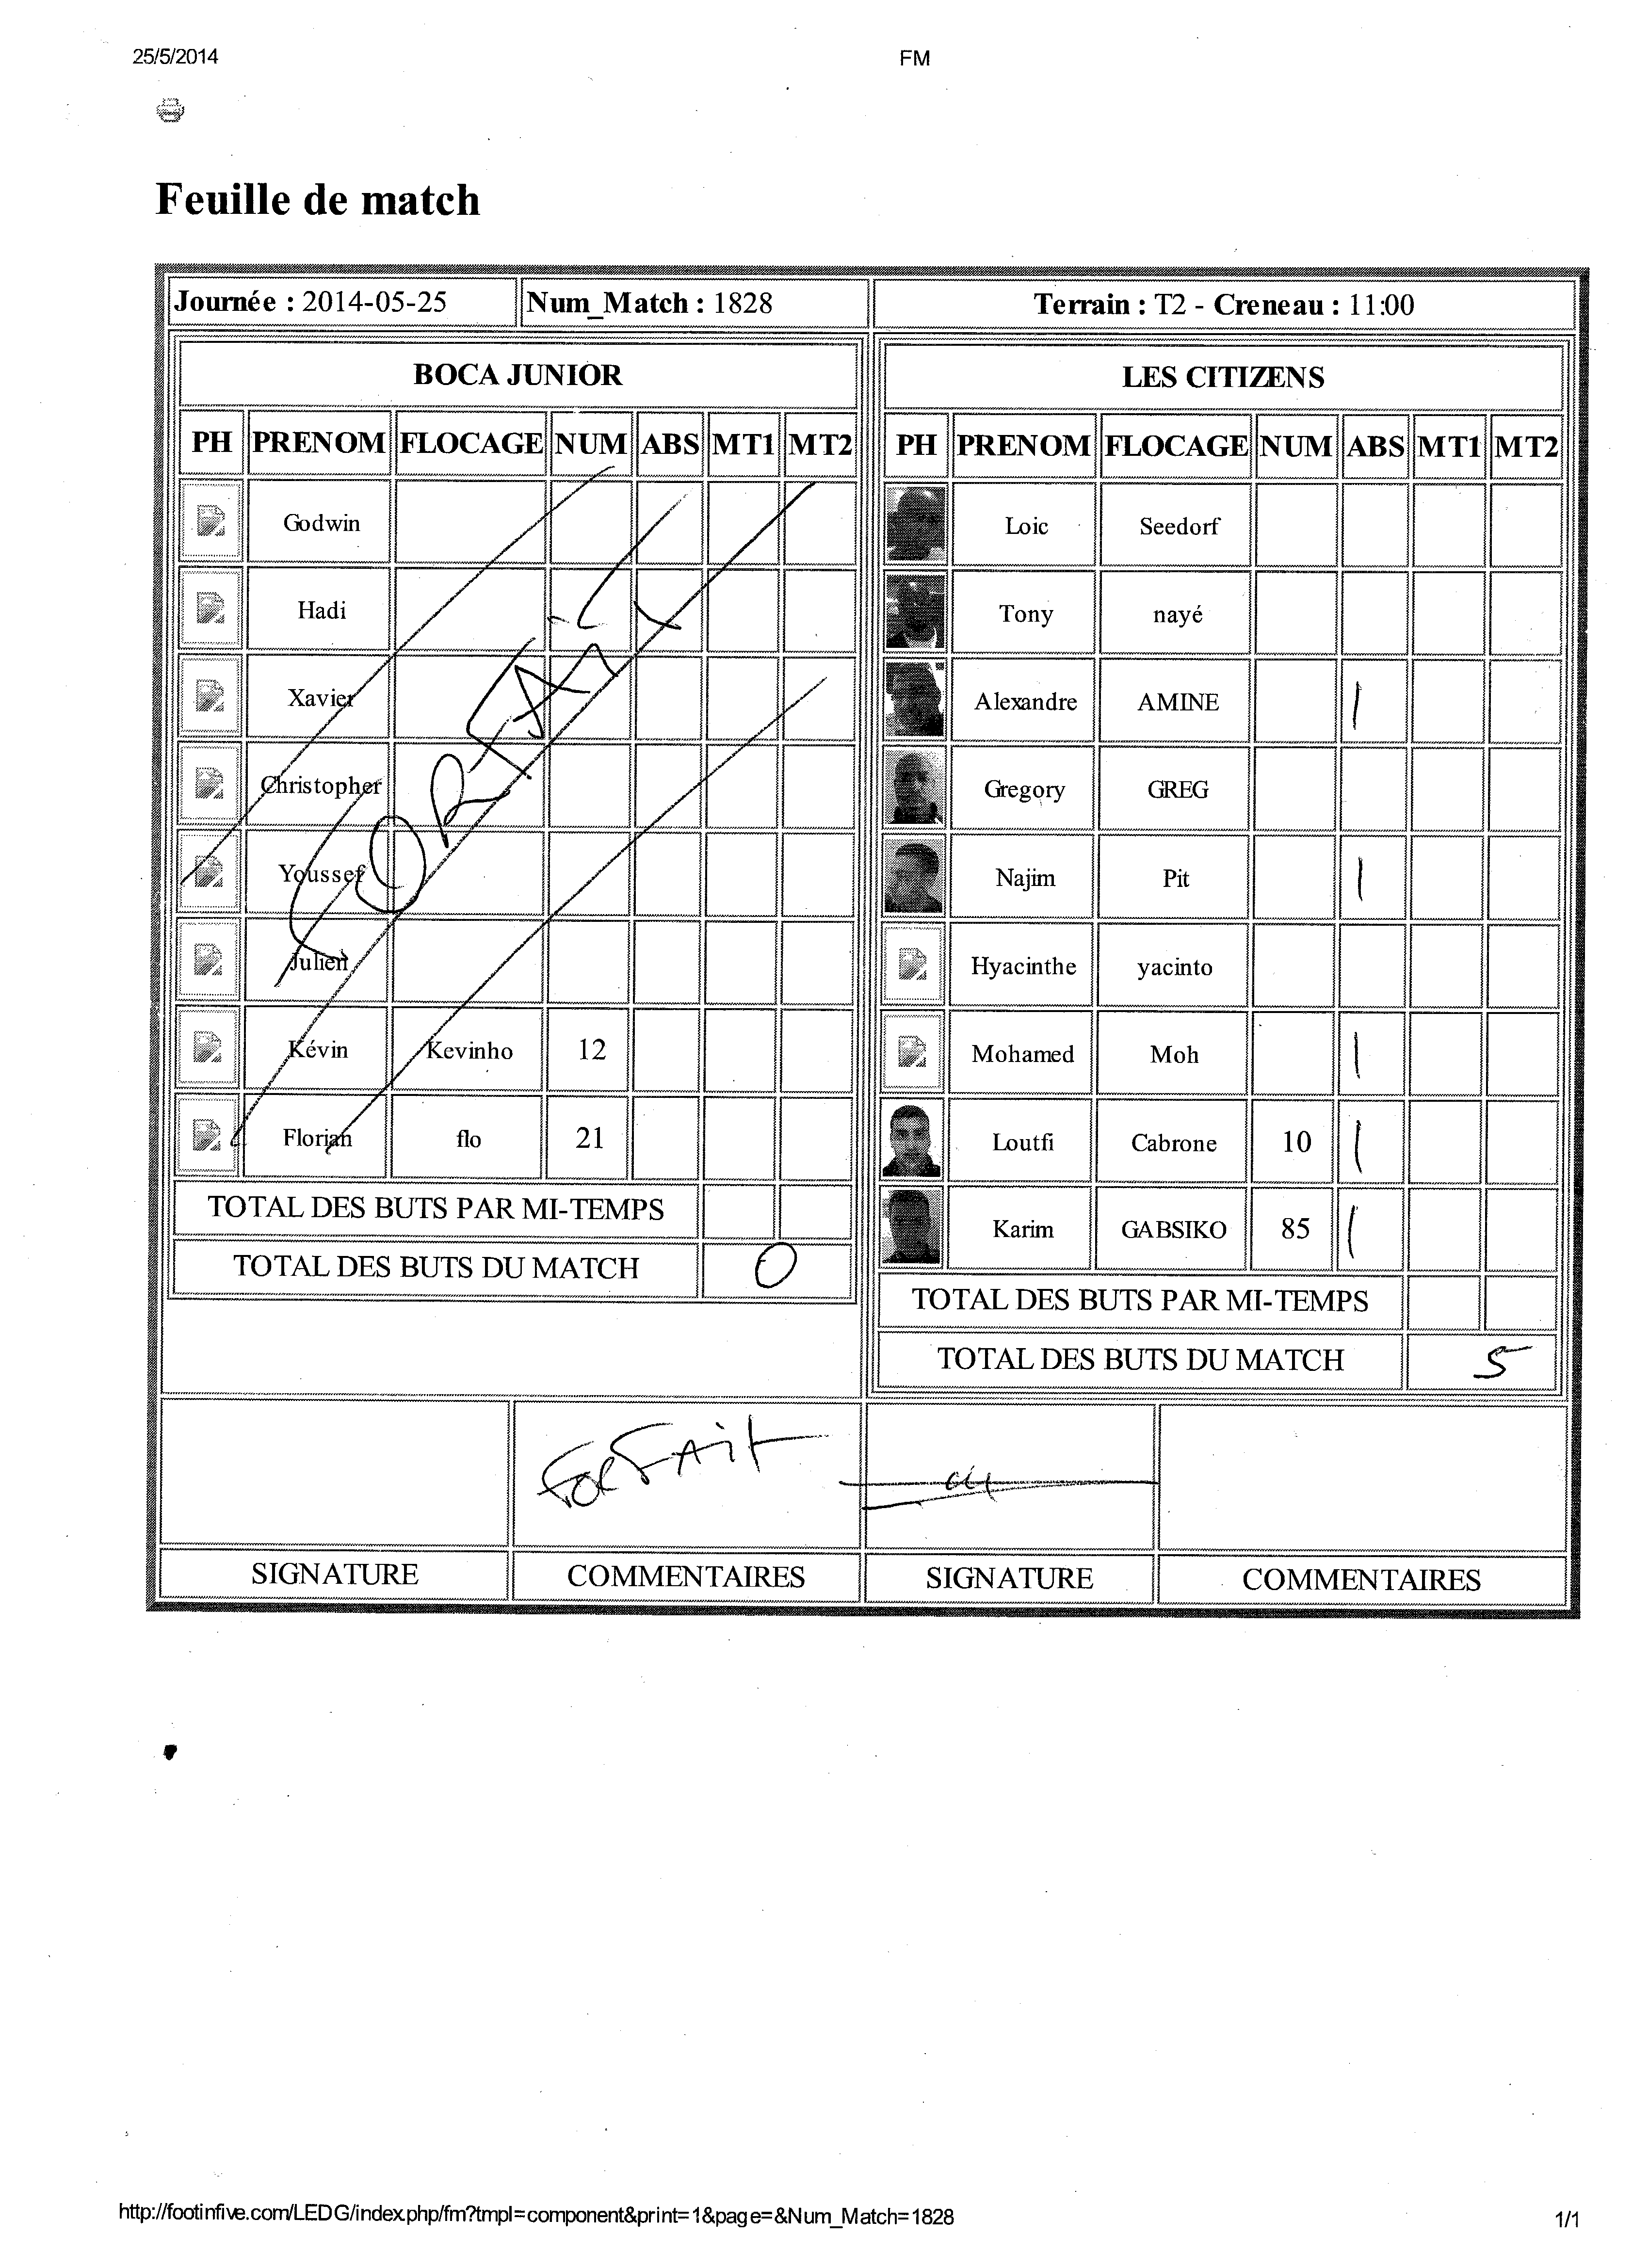 25/5/2014 FM
Feuille de match
Journée : 2014-05-25 Num_Match : 1828 Terrain : T2 - Creneau : 11:00
BOCA JUNIOR
PH PRENOM FLOCAGE NUM ABS MT1 MT2
Godwin
Hadi
Xavier
Christopher
Youssef
Julien
Kévin Kevinho 12
Florian flo 21
FORFAIT
TOTAL DES BUTS PAR MI-TEMPS
TOTAL DES BUTS DU MATCH 0
LES CITIZENS
PH PRENOM FLOCAGE NUM ABS MT1 MT2
Loic Seedorf
Tony nayé
Alexandre AMINE |
Gregory GREG
Najim Pit |
Hyacinthe yacinto
Mohamed Moh |
Loutfi Cabrone 10 |
Karim GABSIKO 85 |
TOTAL DES BUTS PAR MI-TEMPS
TOTAL DES BUTS DU MATCH 5
ForFAit
SIGNATURE COMMENTAIRES SIGNATURE COMMENTAIRES
http://footinfive.com/LEDG/index.php/fm?tmpl=component&print=1&page=&Num_Match=1828 1/1